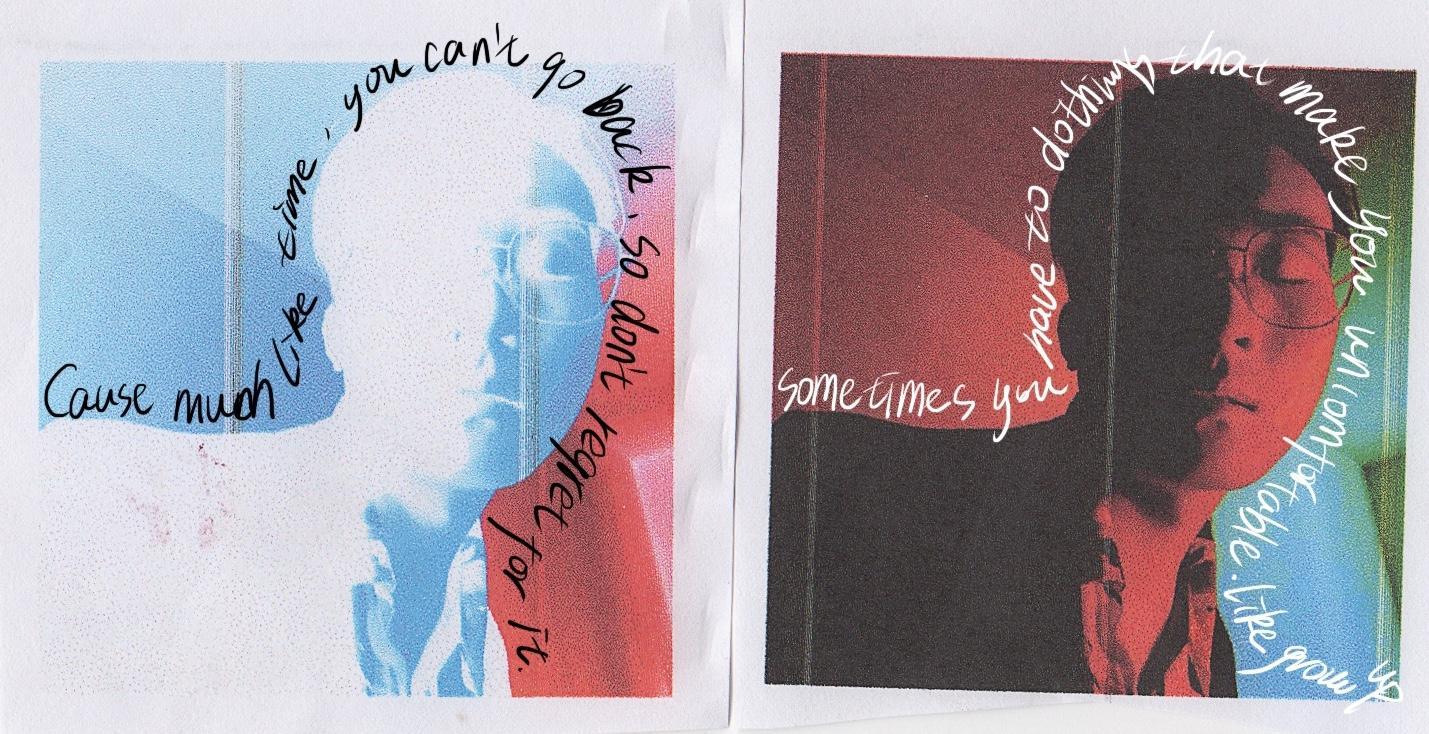 Cause much like time, you can't go back. so don't regret for it.
sometimes you have to do things that make you uncomfortable. like grow up